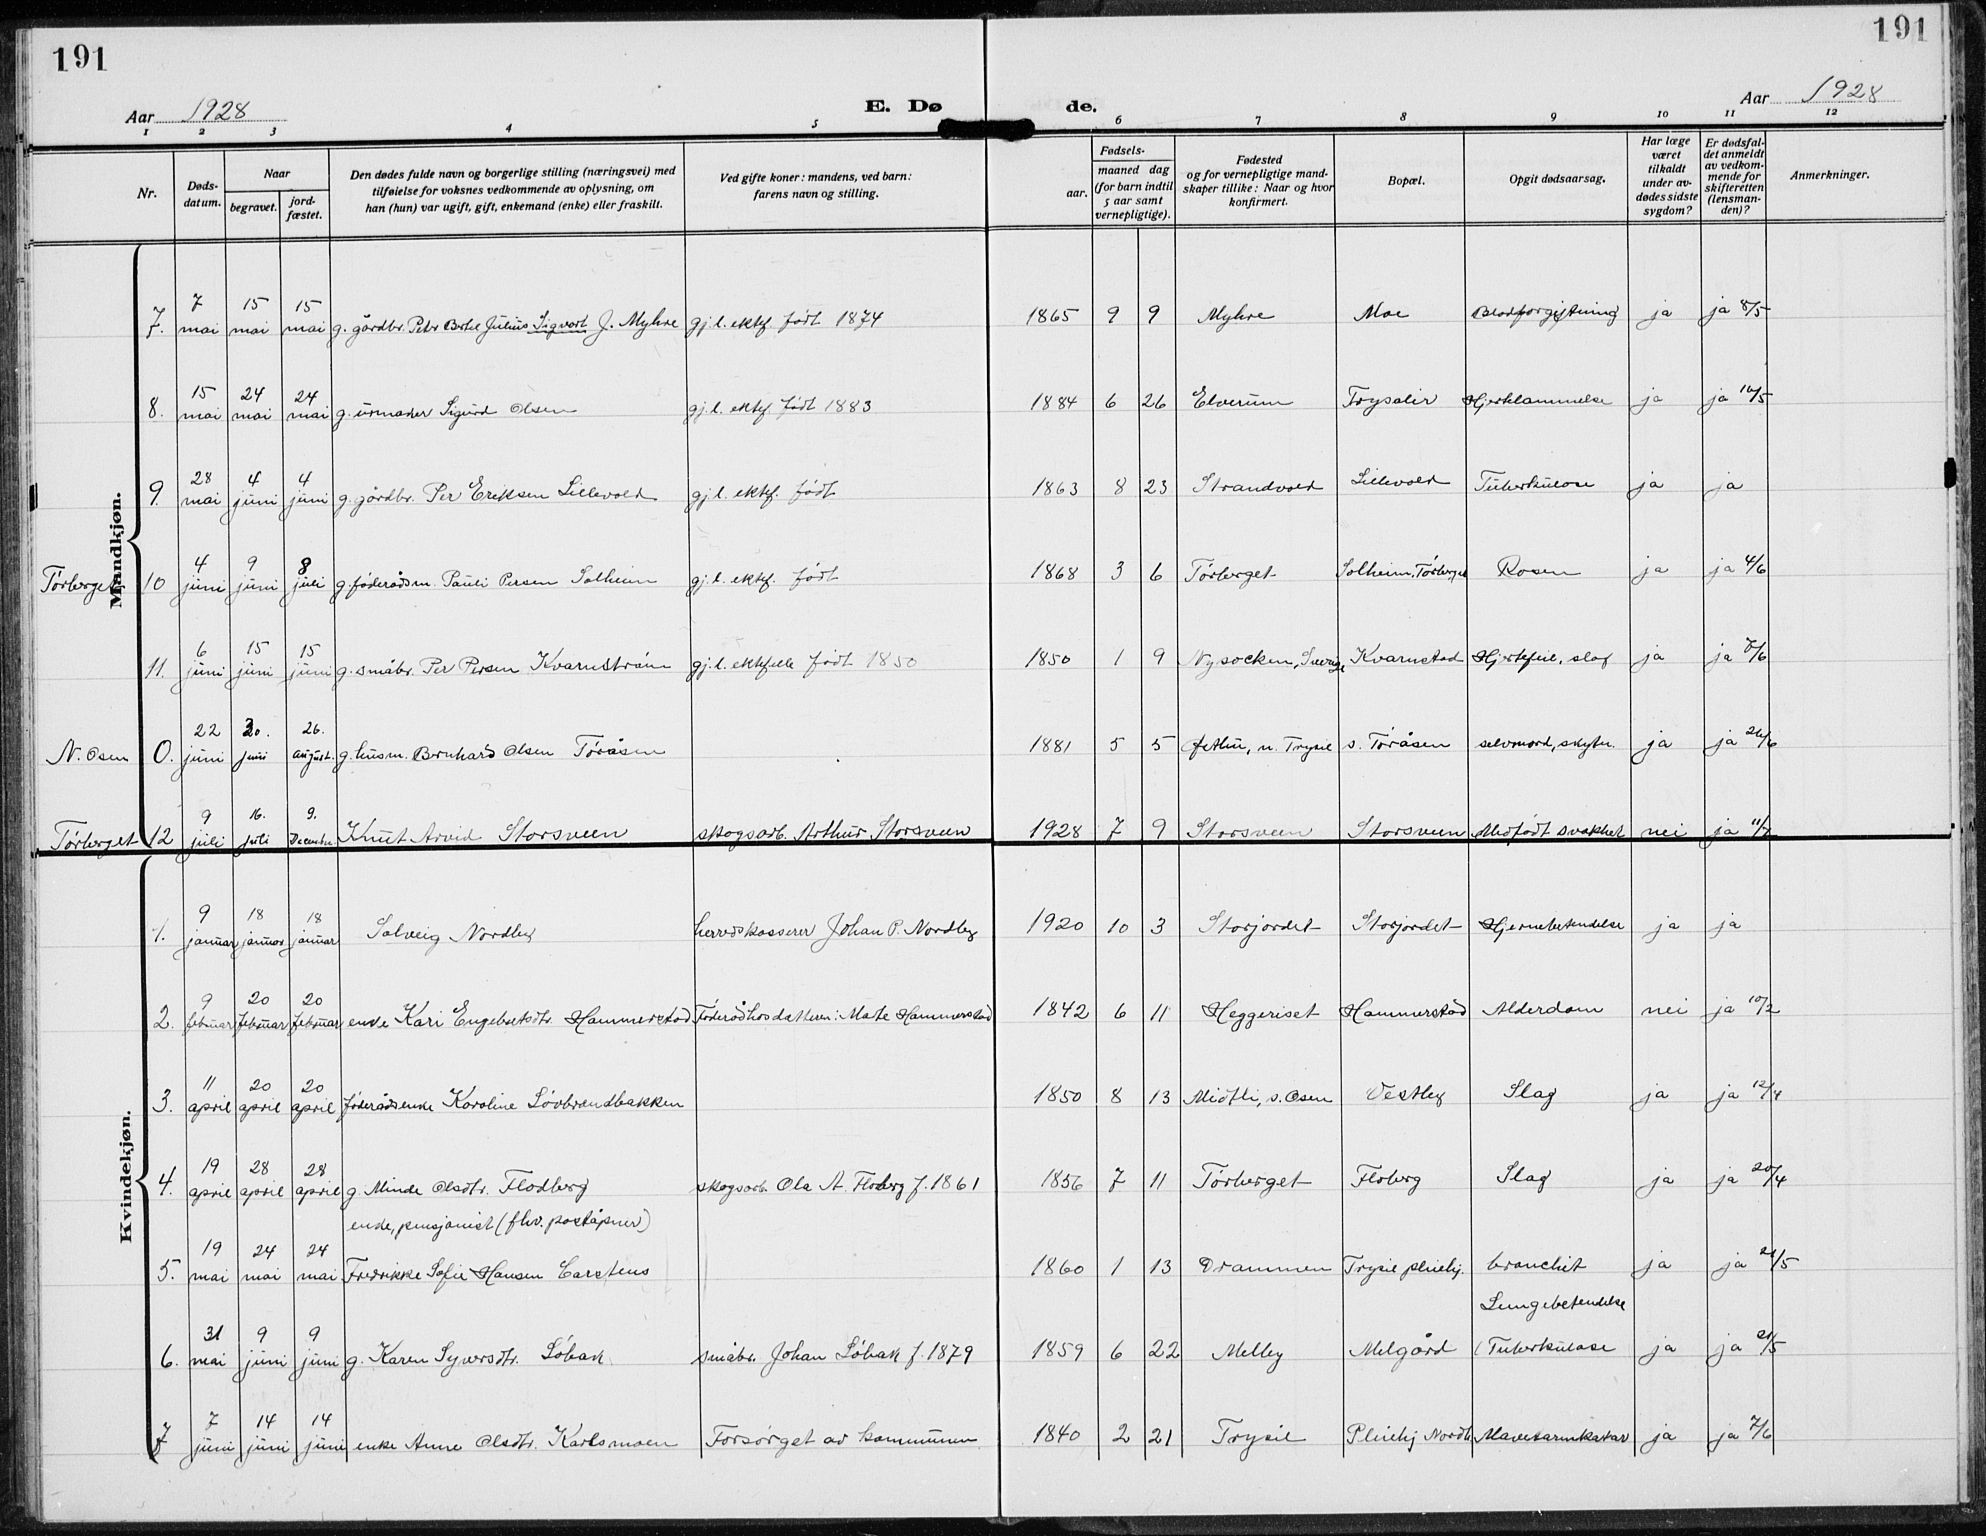 191
191
Aar 1928
E. Dø de.
Aar 1928
1 2 3 4 5 6 7 8 9 10 11 12
Nr.
Døds-
datum.
Naar
begravet.
jord-
fæstet.
Den dødes fulde navn og borgerlige stilling (næringsvei) med
tilføielse for voksnes vedkommende av oplysning, om
han (hun) var ugift, gift, enkemand (enke) eller fraskilt.
Ved gifte koner: mandens, ved barn:
farens navn og stilling.
aar.
Fødsels-
maaned dag
(for barn indtil
5 aar samt
vernepligtige).
Fødested
og for vernepligtige mand-
skaper tillike: Naar og hvor
konfirmert.
Bopæl.
Opgit dødsaarsag.
Har læge
været
tilkaldt
under av-
dødes sidste
sygdom?
Er dødsfal-
det anmeldt
av vedkom-
mende for
skifteretten
(lensman-
den)?
Anmerkninger.
Mandkjøn.
7. 7 mai 15 mai 15 mai g. gårdbr. Petr Bertel Julius Sigvart J. Myhre gj. l. ektef. født 1874 1865 9 9 Myhre Moe Blodforgiftning ja ja 8/5
8. 15 mai 24 mai 24 mai g. urmaker Sigurd Olsen gj. l. ektef. født 1883 1884 6 26 Elverum Trysilir Hjerklammelse ja ja 16/5
9. 28 mai 4 juni 4 juni g. gårdbr. Per Eriksen Lillevold gj. l. ektef. født 1863 8 23 Strandvold Lillevold Tuberkulose ja ja
Tørberget 10 4 juni 9 juni 8 juli g. føderådsm. Pauli Persen Solheim gj. l. ektef. født 1868 3 6 Tørberget Solheim, Tørberget Rosen ja ja 4/6
11. 6 juni 15 juni 15 juni g. småbr. Per Persen Kvarnstrøm gj. l. ektefelle født 1850 1850 1 9 Nysocken, Sverige Kvarnstad Hjertefeil, slag ja ja 7/6
N. Osen 0. 22 juni 30. juni 26. august. g. husm. Bernhard Olsen Tøråsen 1881 5 5 n. Trysil s. Tøråsen selvmord, skyten. ja ja 26/6
Tørberget 12 9 juli 16. juli 9. December. Knut Arvid Storsveen skogsarb. Arthur Storsveen 1928 7 9 Storsveen Storsveen Medfødt svakhet nei ja 11/7
Kvindekjøn.
1. 9 januar 18 januar 18 januar Solveig Nordby herredskasserer Johan P. Nordby 1920 10 3 Storjordet Storjordet Hjernebetendelse ja ja
2. 9 februar 20 februar 20 februar enke Kari Engebretsdtr. Hammerstad Føderåd hos datteren: Mate Hammerstad 1842 6 11 Heggeriset Hammerstad Alderdom nei ja 10/2
3. 11 april 20 april 20 april føderådsenke Karoline Løvbrandbakken 1850 8 13 Midtli, s. Osen Vestby Slag ja ja 12/4
4. 19 april 28 april 28 april g. Minde Olsdtr. Flodberg skogsarb. Ola A. Floberg f. 1861 1856 7 11 Tørberget Floberg Slag ja ja 20/4
enke, pensjonist (fhv. poståpner)
5. 19 mai 24 mai 24 mai Fredrikke Sofie Hansen Carstens 1860 1 13 Drammen Trysil pleiehj. bronchit ja ja 21/5
Lungebetendelse
6. 31 mai 9 juni 9 juni g. Karen Syversdtr. Løbak småbr. Johan Løbak f. 1879 1859 6 22 Melby Melgård (Tuberkulose ja ja 21/5
7 7 juni 14 juni 14 juni enke Anne Olsdtr. Karlsmoen Forsørget av kommunen 1840 2 21 Trysil Pleiehj Nordb. Mavetarmkatar ja ja 7/6